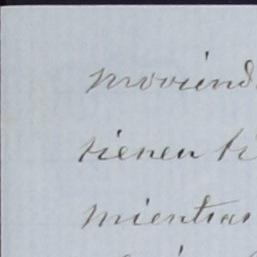 moviend
tienen ti
mientras